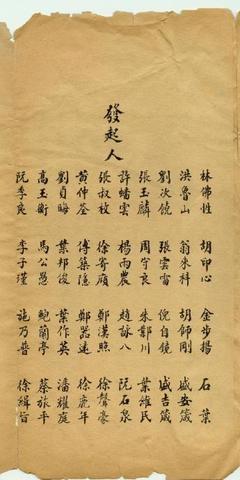 發起人
林佛性 胡印心 金步揚 石葉
洪魯山 翁來科 胡師剛 戚安箴
劉次饒 張雲雷 倪自 戚吉箴
張玉麟 周守良 朱川 葉維民
許蟠雲 楊雨農 趙詠八 阮石泉
張叔枚 徐寄廎 鄭漢照 徐聲豪
黃仲荃 傅築隱 鄭器遠 徐鹿年
劉貞晦 葉邦俊 葉作英 潘耀庭
高玉衡 馬公愚 鮑蘭亭 蔡旅平
阮季 李子瑾 施乃普 徐緝